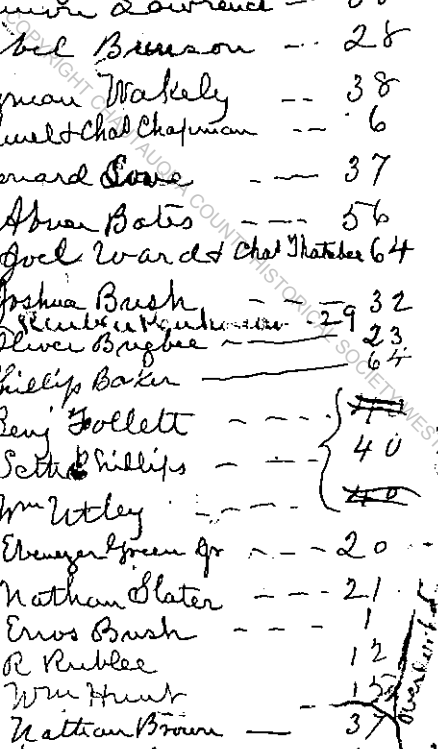 Lawrence --
Brunson -- 28
Wakely -- 38
& Chas Chapman -- 6
Love --- 37
Abner Bates ---- 56
Joel Ward & Chas Thatcher 64
Joshua Bush ---- 32
29
Oliver Bugbee -- 23
Phillip Baker —— 64
Benj Follett ----
Seth Phillips --- 40
Wm Utley ---- 40
Ebenezer Green Jr --- 20
Nathan Slater --- 21
Enos Bush --- 1
R Rublee 12
Wm Hunt
Nathan Brown — 37
COPYRIGHT CHAUTAUQUA COUNTY HISTORICAL SOCIETY, WEST